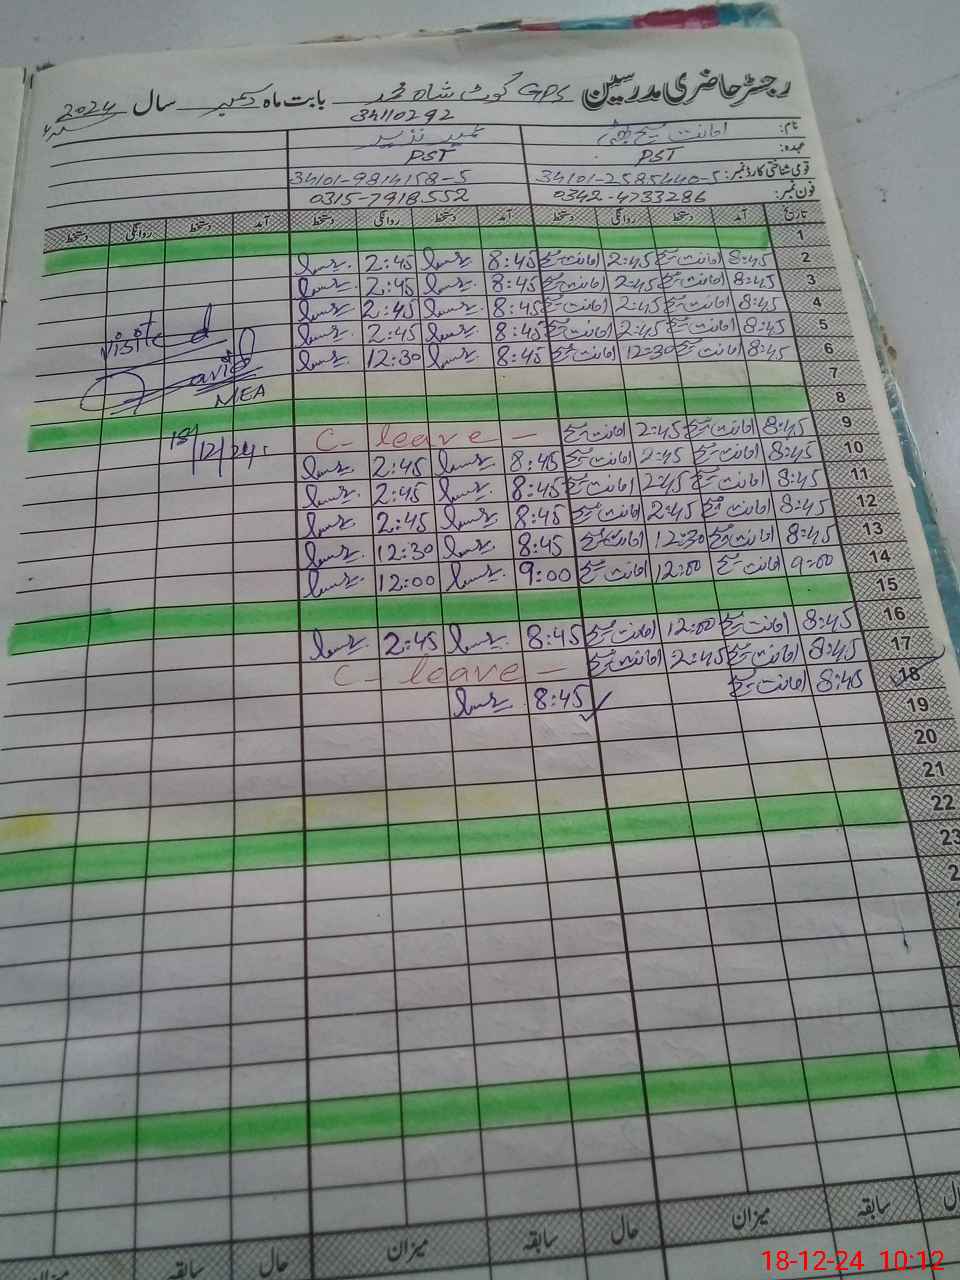 رجسٹر حاضری مدرسین GPS کوٹ شاہ محمد بابت ماہ دسمبر سال 2024
34110292
نام: امانت مسیح بھٹی
عہدہ: PST PST
قومی شناختی کارڈ نمبر: 34101-2585440-5 34101-9814158-5
فون نمبر: 0342-4733286 0315-7918552
تاریخ آمد دستخط روانگی دستخط آمد دستخط روانگی دستخط آمد دستخط روانگی دستخط
1
2 8:45 امانت مسیح 2:45 امانت مسیح 8:45 2:45
3 8:45 امانت مسیح 2:45 امانت مسیح 8:45 2:45
4 8:45 امانت مسیح 2:45 امانت مسیح 8:45 2:45
5 8:45 امانت مسیح 2:45 امانت مسیح 8:45 2:45
6 8:45 امانت مسیح 12:30 امانت مسیح 8:45 12:30
7
8
9 8:45 امانت مسیح 2:45 امانت مسیح C- leave -
10 8:45 امانت مسیح 2:45 امانت مسیح 8:45 2:45
11 8:45 امانت مسیح 2:45 امانت مسیح 8:45 2:45
12 8:45 امانت مسیح 2:45 امانت مسیح 8:45 2:45
13 8:45 امانت مسیح 12:30 امانت مسیح 8:45 12:30
14 9:00 امانت مسیح 12:00 امانت مسیح 9:00 12:00
15
16 8:45 امانت مسیح 12:00 امانت مسیح 8:45 2:45
17 8:45 امانت مسیح 2:45 امانت مسیح C- leave -
18 8:45 امانت مسیح 8:45
19
20
21
22
23
visited
MEA
18/12/24
سابقہ میزان حال سابقہ میزان حال سابقہ میزان
18-12-24 10:12